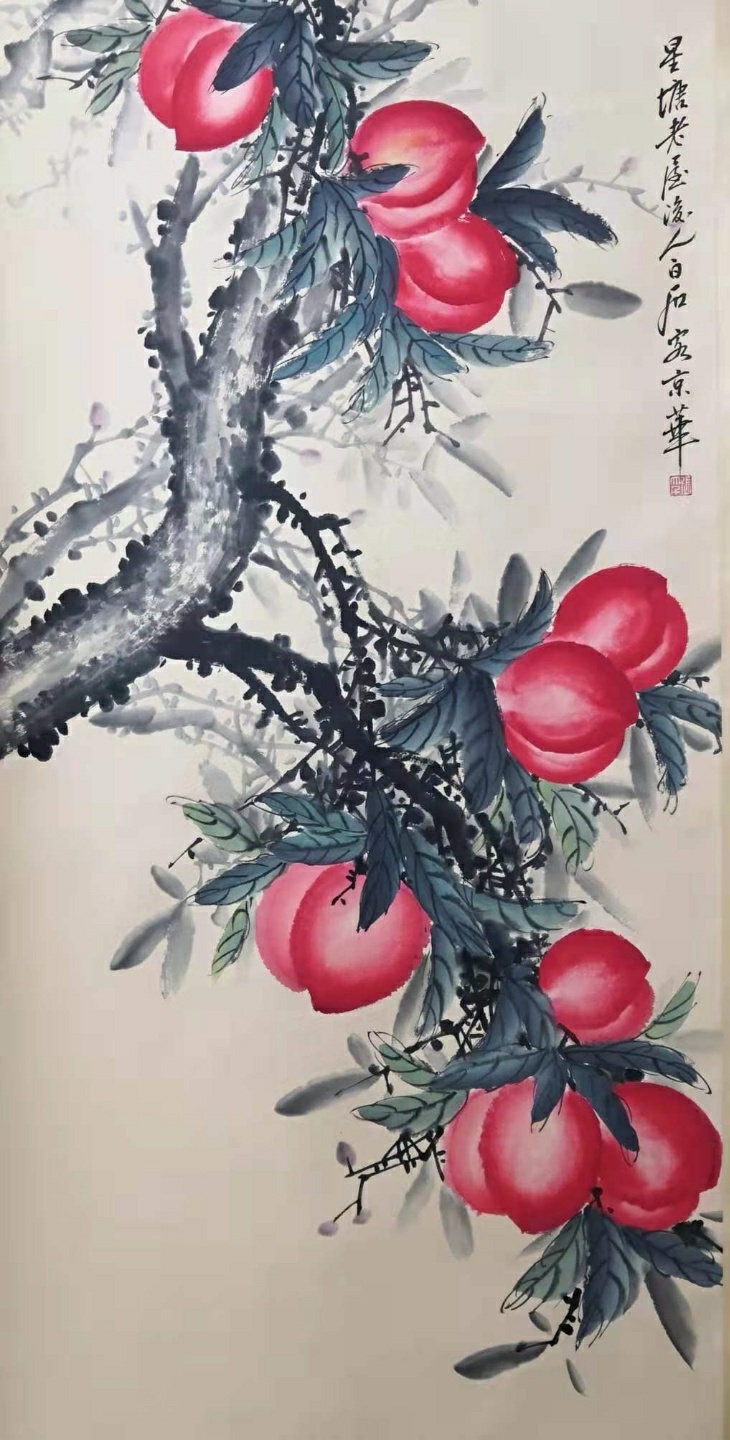 星塘老屋後人白石客京華